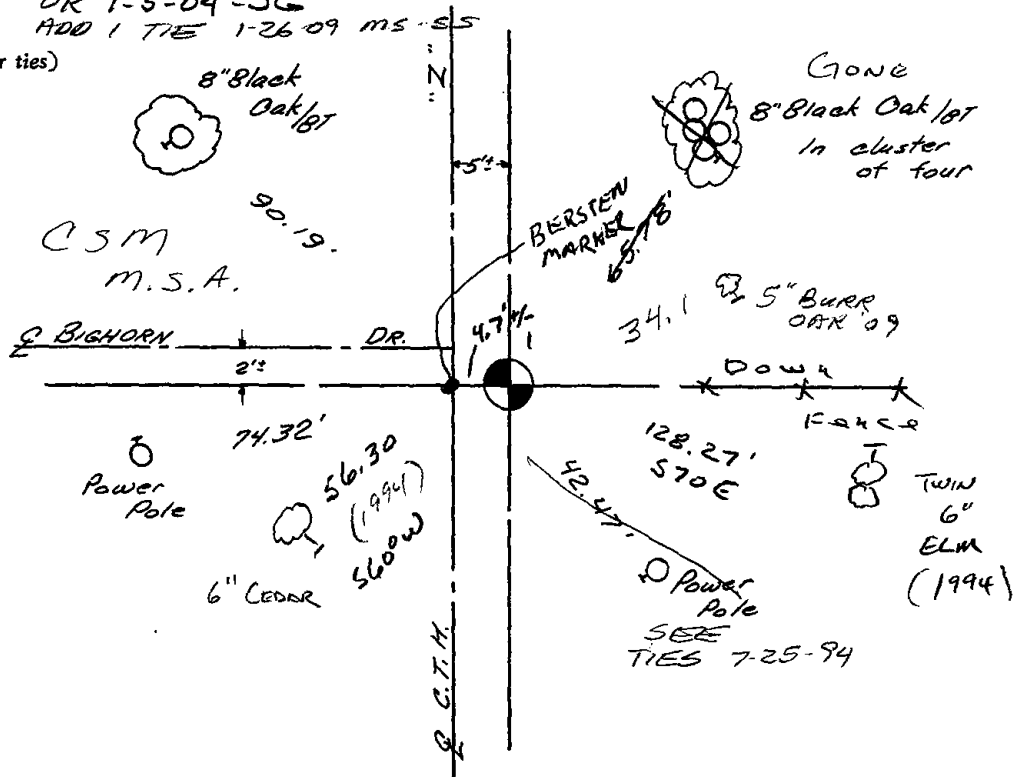 OK 1-5-04 -JG
ADD 1 TIE 1-26-09 MS-SS
r ties)
8" Black
Oak/BT
"Z"
GONE
8" Black Oak/BT
In cluster
of four
5'±
90.19.
BERSTEN
MARKER
65.78'
CSM
M.S.A.
34.1
5" BURR
OAK '09
℄ BIGHORN DR.
4.7' +/-
2'±
Down
Fence
74.32'
Power
Pole
56.30
(1994)
S60°W
6" CEDAR
128.27'
S70E
42.47'
TWIN
6"
ELM
(1994)
Power
Pole
SEE
TIES 7-25-94
℄ C.T.H.